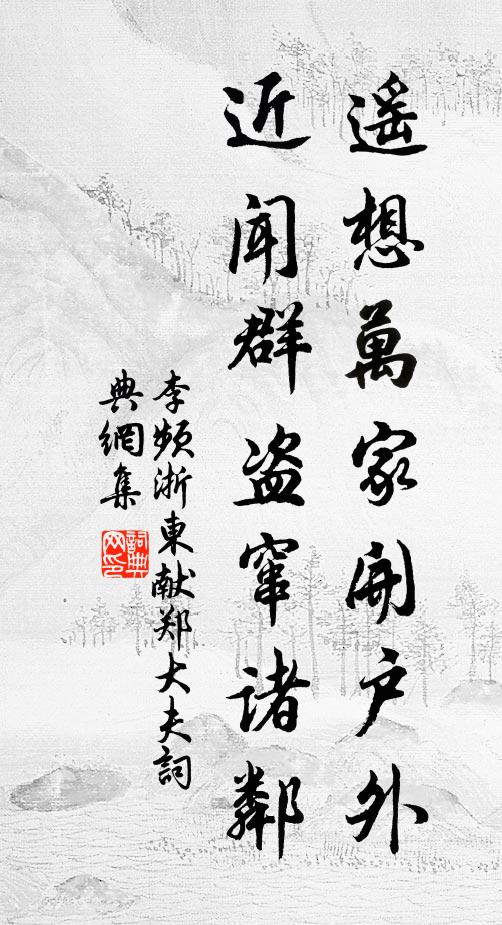 遥想萬家開户外
近聞群盗竄诸鄰
李频浙東献郑大夫詞
典網集
詞典
网印